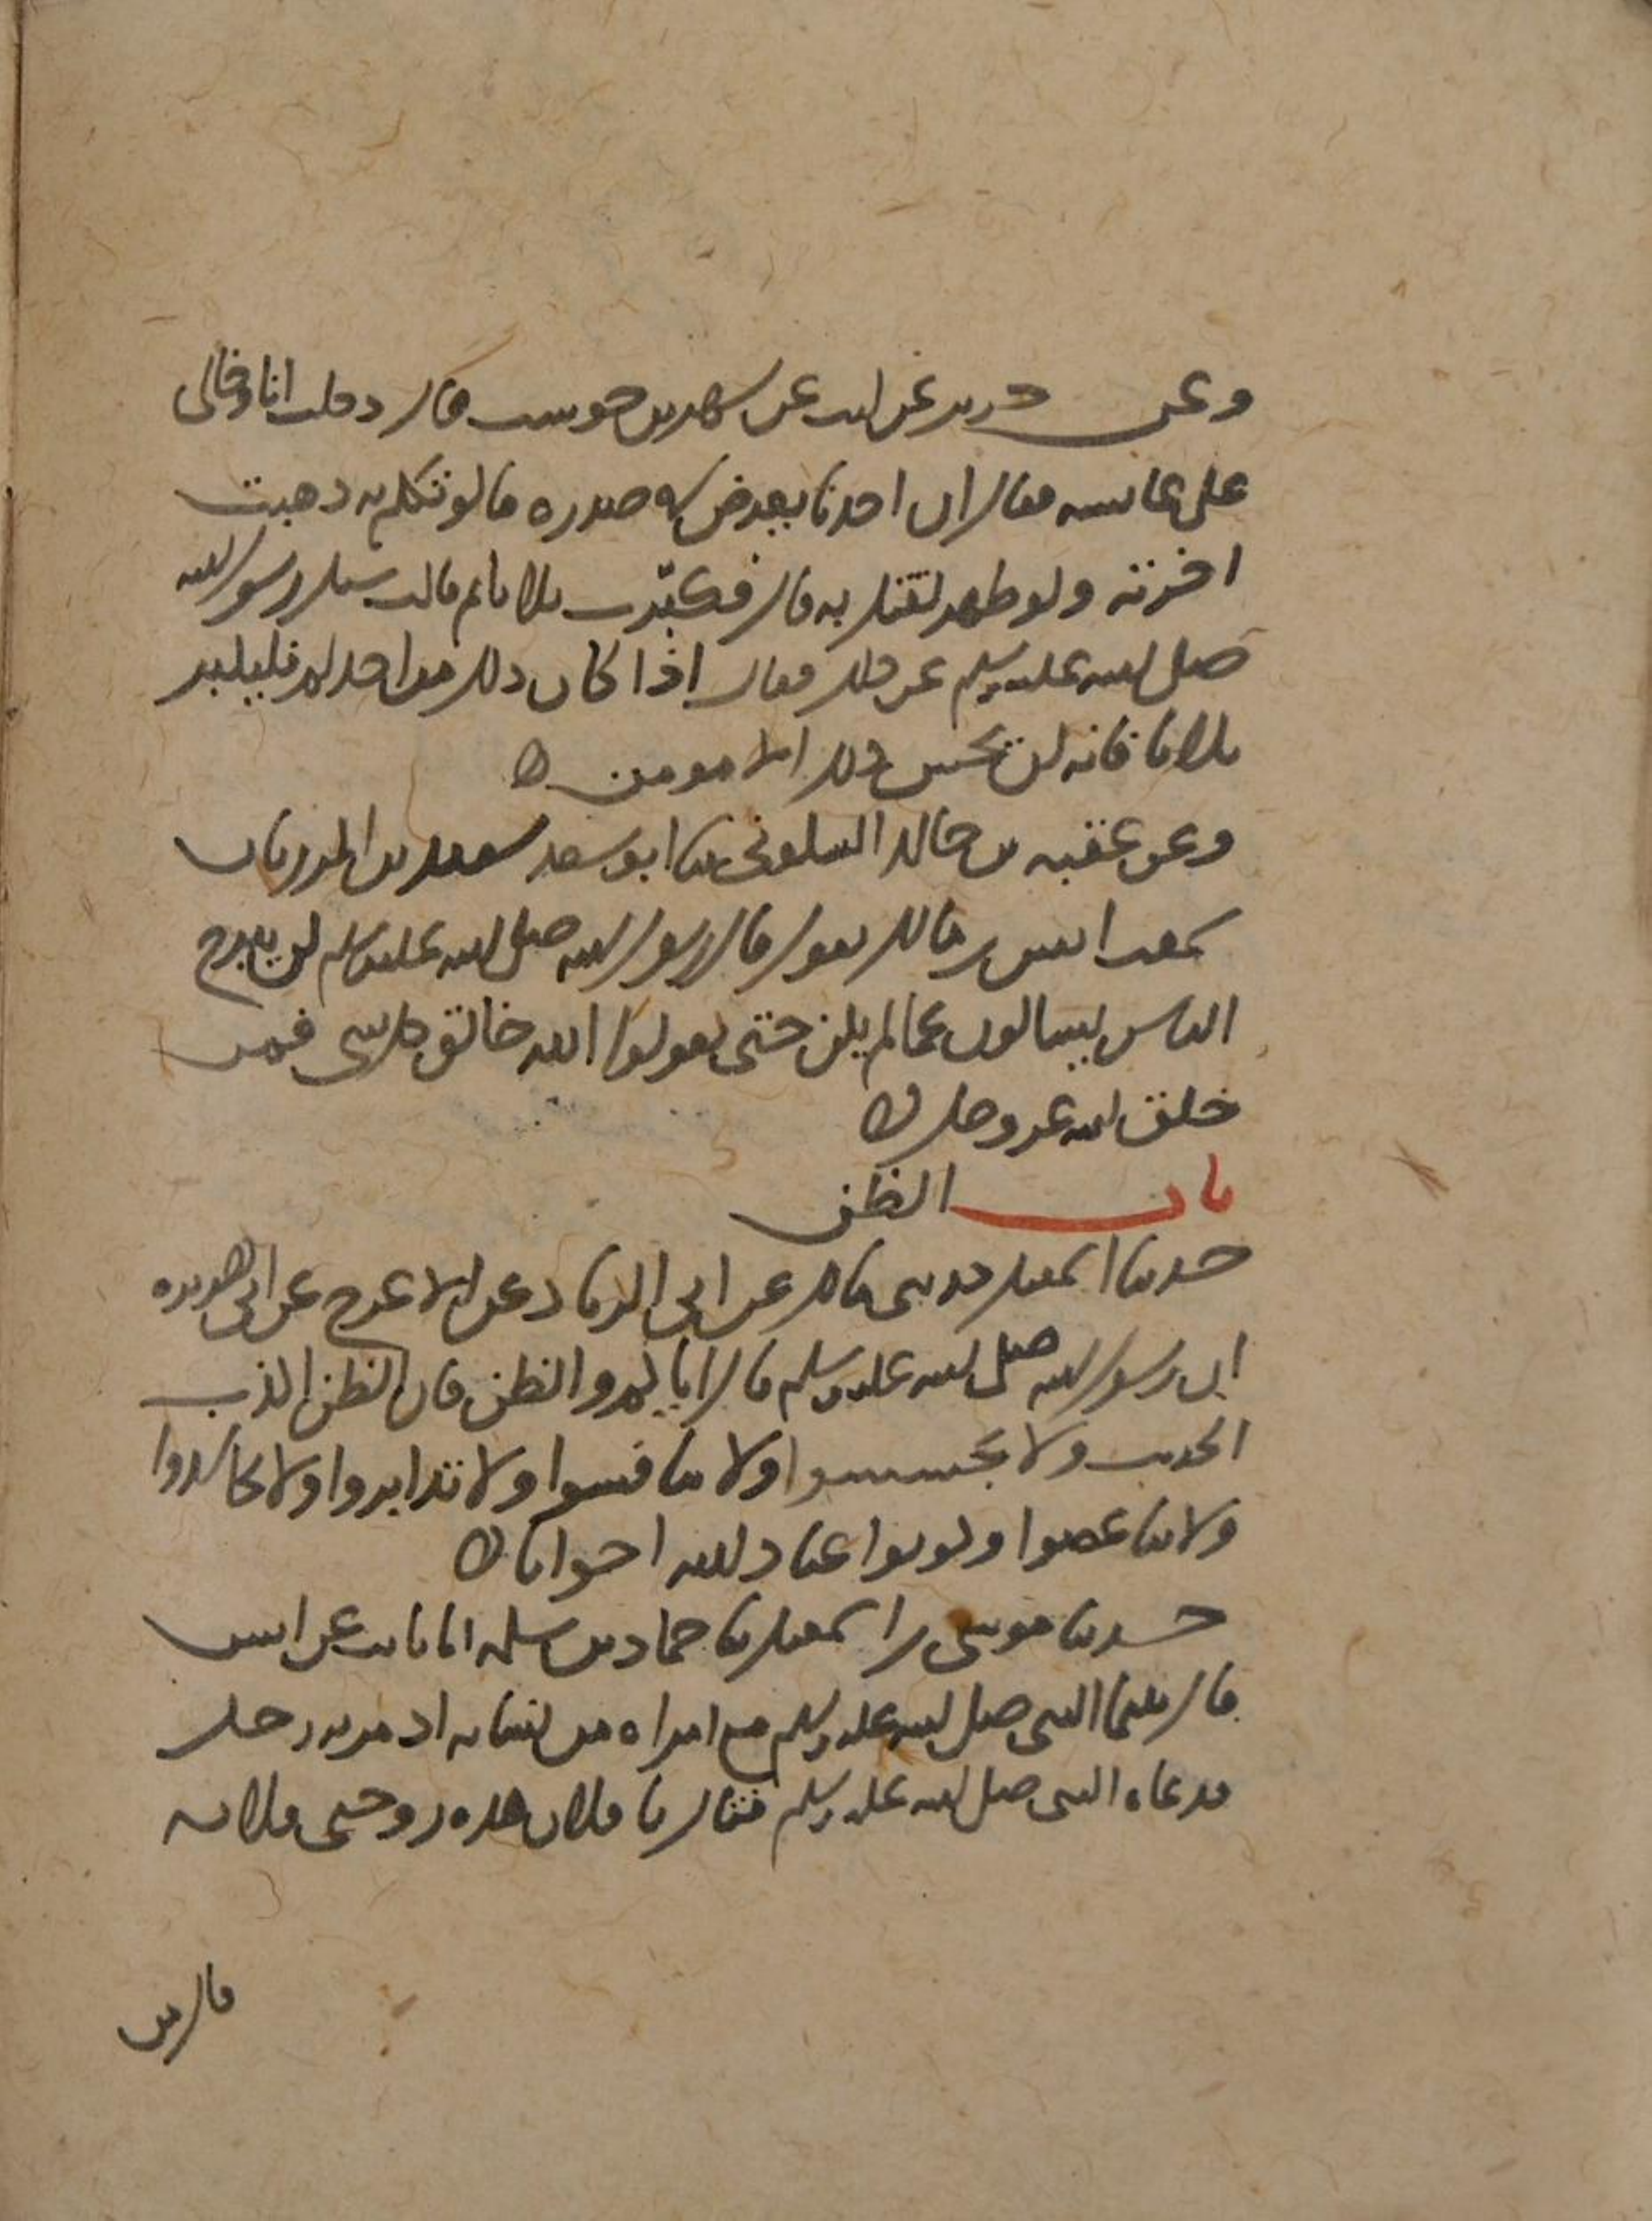 وعن حريز عن ليث عن شهر بن حوشب قال دخلت انا وخالي
على عائشة فقال ان احدنا يعرض في صدره ما لو تكلم به ذهبت
اخرته ولو ظهر لقتل به قال فكبّرت ثلاثا ثم قالت سئل رسول الله
صلى الله عليه وسلم عن ذلك فقال اذا كان ذلك من احدكم فليكبر
ثلاثا فانه لن يحس ذلك الا مومن
وعن عقبة بن خالد السكوني ثنا ابو سعد سعيد بن المرزبان
سمعت انس بن مالك يقول قال رسول الله صلى الله عليه وسلم لن يبرح
الناس يسالون عما لم يكن حتى يقولوا الله خالق كل شي فمن
خلق الله عز وجل
باب الظن
حدثنا اسمعيل حدثني مالك عن ابي الزناد عن الاعرج عن ابي هريرة
ان رسول الله صلى الله عليه وسلم قال اياكم والظن فان الظن اكذب
الحديث ولا تجسسوا ولا تنافسوا ولا تدابروا ولا تحاسدوا
ولا تباغضوا وكونوا عباد الله اخوانا
حدثنا موسى بن اسمعيل ثنا حماد بن سلمة انا ثابت عن انس
قال بينما النبي صلى الله عليه وسلم مع امراة من نسائه اذ مر به رجل
فدعاه النبي صلى الله عليه وسلم فقال يا فلان هذه زوجتي فلانة
قال من